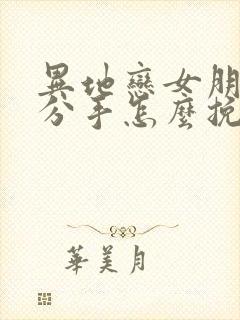 異地戀女朋
分手怎麼挽
華美月